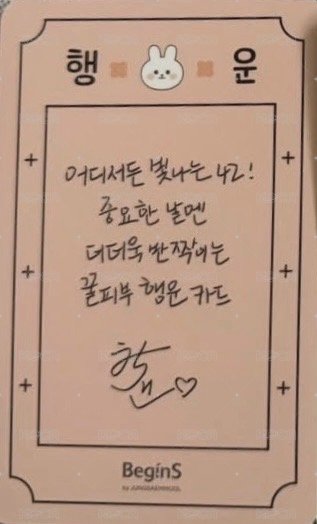 행 운
어디서든 빛나는 42!
중요한 날엔
더더욱 반짝이는
꿀피부 행운 카드
BeginS
by JUNGSAEMMOOL